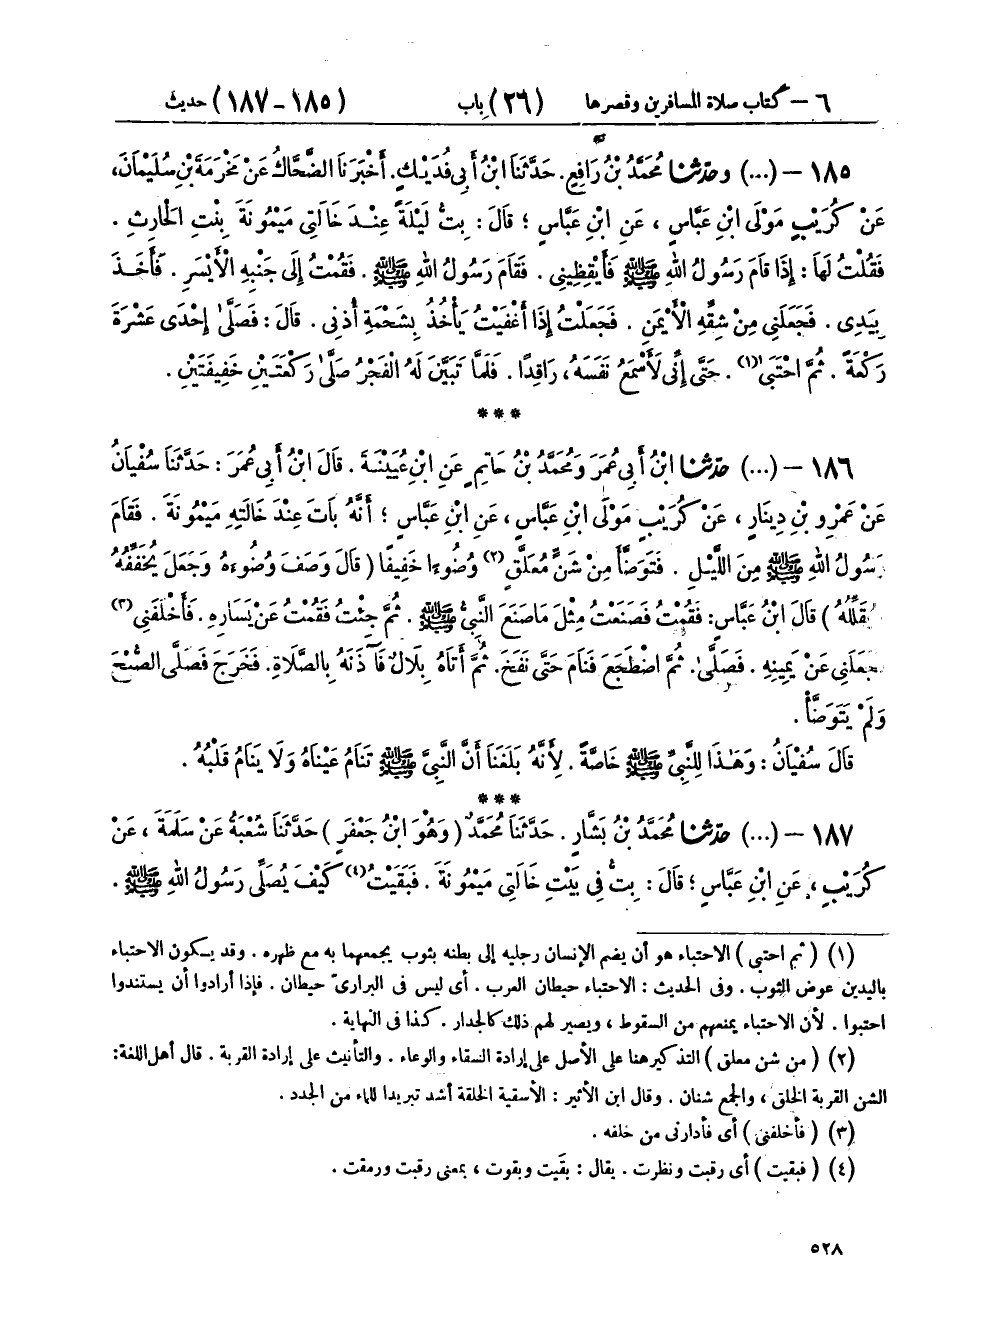 ٦ – كتاب صلاة المسافرين وقصرها (٢٦) باب (١٨٥-١٨٧) حديث
١٨٥ – (...) وحَدَّثَنَا مُحَمَّدُ بْنُ رَافِعٍ. حَدَّثَنَا ابْنُ أَبِي فُدَيْكٍ. أَخْبَرَنَا الضَّحَّاكُ عَنْ مَخْرَمَةَ بْنِ سُلَيْمَانَ،
عَنْ كُرَيْبٍ مَوْلَى ابْنِ عَبَّاسٍ ، عَنِ ابْنِ عَبَّاسٍ ؛ قَالَ : بِتُّ لَيْلَةً عِنْدَ خَالَتِي مَيْمُونَةَ بِنْتِ الْحَارِثِ .
فَقُلْتُ لَهَا : إِذَا قَامَ رَسُولُ اللهِ ﷺ فَأَيْقِظِينِي . فَقَامَ رَسُولُ اللهِ ﷺ . فَقُمْتُ إِلَى جَنْبِهِ الْأَيْسَرِ . فَأَخَذَ
بِيَدِي . فَجَعَلَنِي مِنْ شِقِّهِ الْأَيْمَنِ . فَجَعَلْتُ إِذَا أَغْفَيْتُ يَأْخُذُ بِشَحْمَةِ أُذُنِي . قَالَ : فَصَلَّىٰ إِحْدَى عَشْرَةَ
رَكْعَةً . ثُمَّ احْتَبَىٰ(١) . حَتَّى إِنِّي لَأَسْمَعُ نَفَسَهُ ، رَاقِدًا . فَلَمَّا تَبَيَّنَ لَهُ الْفَجْرُ صَلَّىٰ رَكْعَتَيْنِ خَفِيفَتَيْنِ .
***
١٨٦ – (...) حَدَّثَنَا ابْنُ أَبِي عُمَرَ وَمُحَمَّدُ بْنُ حَاتِمٍ عَنِ ابْنِ عُيَيْنَةَ . قَالَ ابْنُ أَبِي عُمَرَ : حَدَّثَنَا سُفْيَانُ
عَنْ عَمْرِو بْنِ دِينَارٍ ، عَنْ كُرَيْبٍ مَوْلَى ابْنِ عَبَّاسٍ ، عَنِ ابْنِ عَبَّاسٍ ؛ أَنَّهُ بَاتَ عِنْدَ خَالَتِهِ مَيْمُونَةَ . فَقَامَ
رَسُولُ اللهِ ﷺ مِنَ اللَّيْلِ . فَتَوَضَّأَ مِنْ شَنٍّ مُعَلَّقٍ(٢) وُضُوءًا خَفِيفًا ( قَالَ وَصَفَ وُضُوءَهُ وَجَعَلَ يُخَفِّفُهُ
يُقَلِّلُهُ ) قَالَ ابْنُ عَبَّاسٍ : فَقُمْتُ فَصَنَعْتُ مِثْلَ مَا صَنَعَ النَّبِيُّ ﷺ . ثُمَّ جِئْتُ فَقُمْتُ عَنْ يَسَارِهِ . فَأَخْلَفَنِي(٣)
جَعَلَنِي عَنْ يَمِينِهِ . فَصَلَّىٰ . ثُمَّ اضْطَجَعَ فَنَامَ حَتَّى نَفَخَ . ثُمَّ أَتَاهُ بِلَالٌ فَآذَنَهُ بِالصَّلَاةِ . فَخَرَجَ فَصَلَّى الصُّبْحَ
وَلَمْ يَتَوَضَّأْ .
قَالَ سُفْيَانُ : وَهَٰذَا لِلنَّبِيِّ ﷺ خَاصَّةً . لِأَنَّهُ بَلَغَنَا أَنَّ النَّبِيَّ ﷺ تَنَامُ عَيْنَاهُ وَلَا يَنَامُ قَلْبُهُ .
***
١٨٧ – (...) حَدَّثَنَا مُحَمَّدُ بْنُ بَشَّارٍ . حَدَّثَنَا مُحَمَّدٌ ( وَهُوَ ابْنُ جَعْفَرٍ ) حَدَّثَنَا شُعْبَةُ عَنْ سَلَمَةَ ، عَنْ
كُرَيْبٍ ، عَنِ ابْنِ عَبَّاسٍ ؛ قَالَ : بِتُّ فِي بَيْتِ خَالَتِي مَيْمُونَةَ . فَبَقَيْتُ(٤) كَيْفَ يُصَلِّي رَسُولُ اللهِ ﷺ .
(١) ( ثم احتبى ) الاحتباء هو أن يضم الإنسان رجليه إلى بطنه بثوب يجمعهما به مع ظهره . وقد يكون الاحتباء
باليدين عوض الثوب . وفى الحديث : الاحتباء حيطان العرب . أى ليس فى البرارىّ حيطان . فإذا أرادوا أن يستندوا
احتبوا . لأن الاحتباء يمنعهم من السقوط ، ويصير لهم ذلك كالجدار . كذا فى النهاية .
(٢) ( من شن معلق ) التذكير هنا على الأصل على إرادة السقاء والوعاء . والتأنيث على إرادة القربة . قال أهل اللغة :
الشن القربة الخلق ، والجمع شنان . وقال ابن الأثير : الأسقية الخلقة أشد تبريدا للماء من الجدد .
(٣) ( فأخلفنى ) أى فأدارنى من خلفه .
(٤) ( فبقيت ) أى رقبت ونظرت . يقال : بقَيت وبقوت ، بمعنى رقبت ورمقت .
٥٢٨